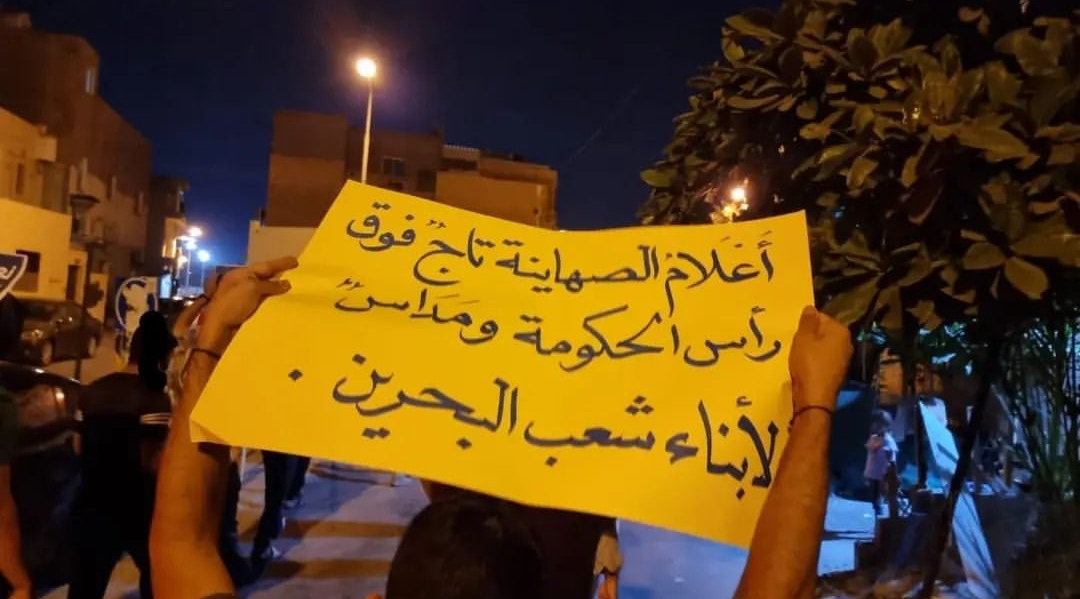 أَعْلَامُ الصهاينة تاجٌ فوق
رأس الحكومة ومَدَاسٌ
لأبناء شعب البحرين .